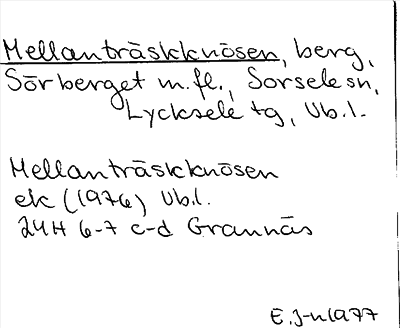 Mellanträskknösen, berg,
Sörberget m.fl., Sorsele sn,
Lycksele tg, Vb.l.
Mellanträskknösen
ek (1976) Vb.l.
24H 6-7 c-d Grannäs
E.J-n 1977